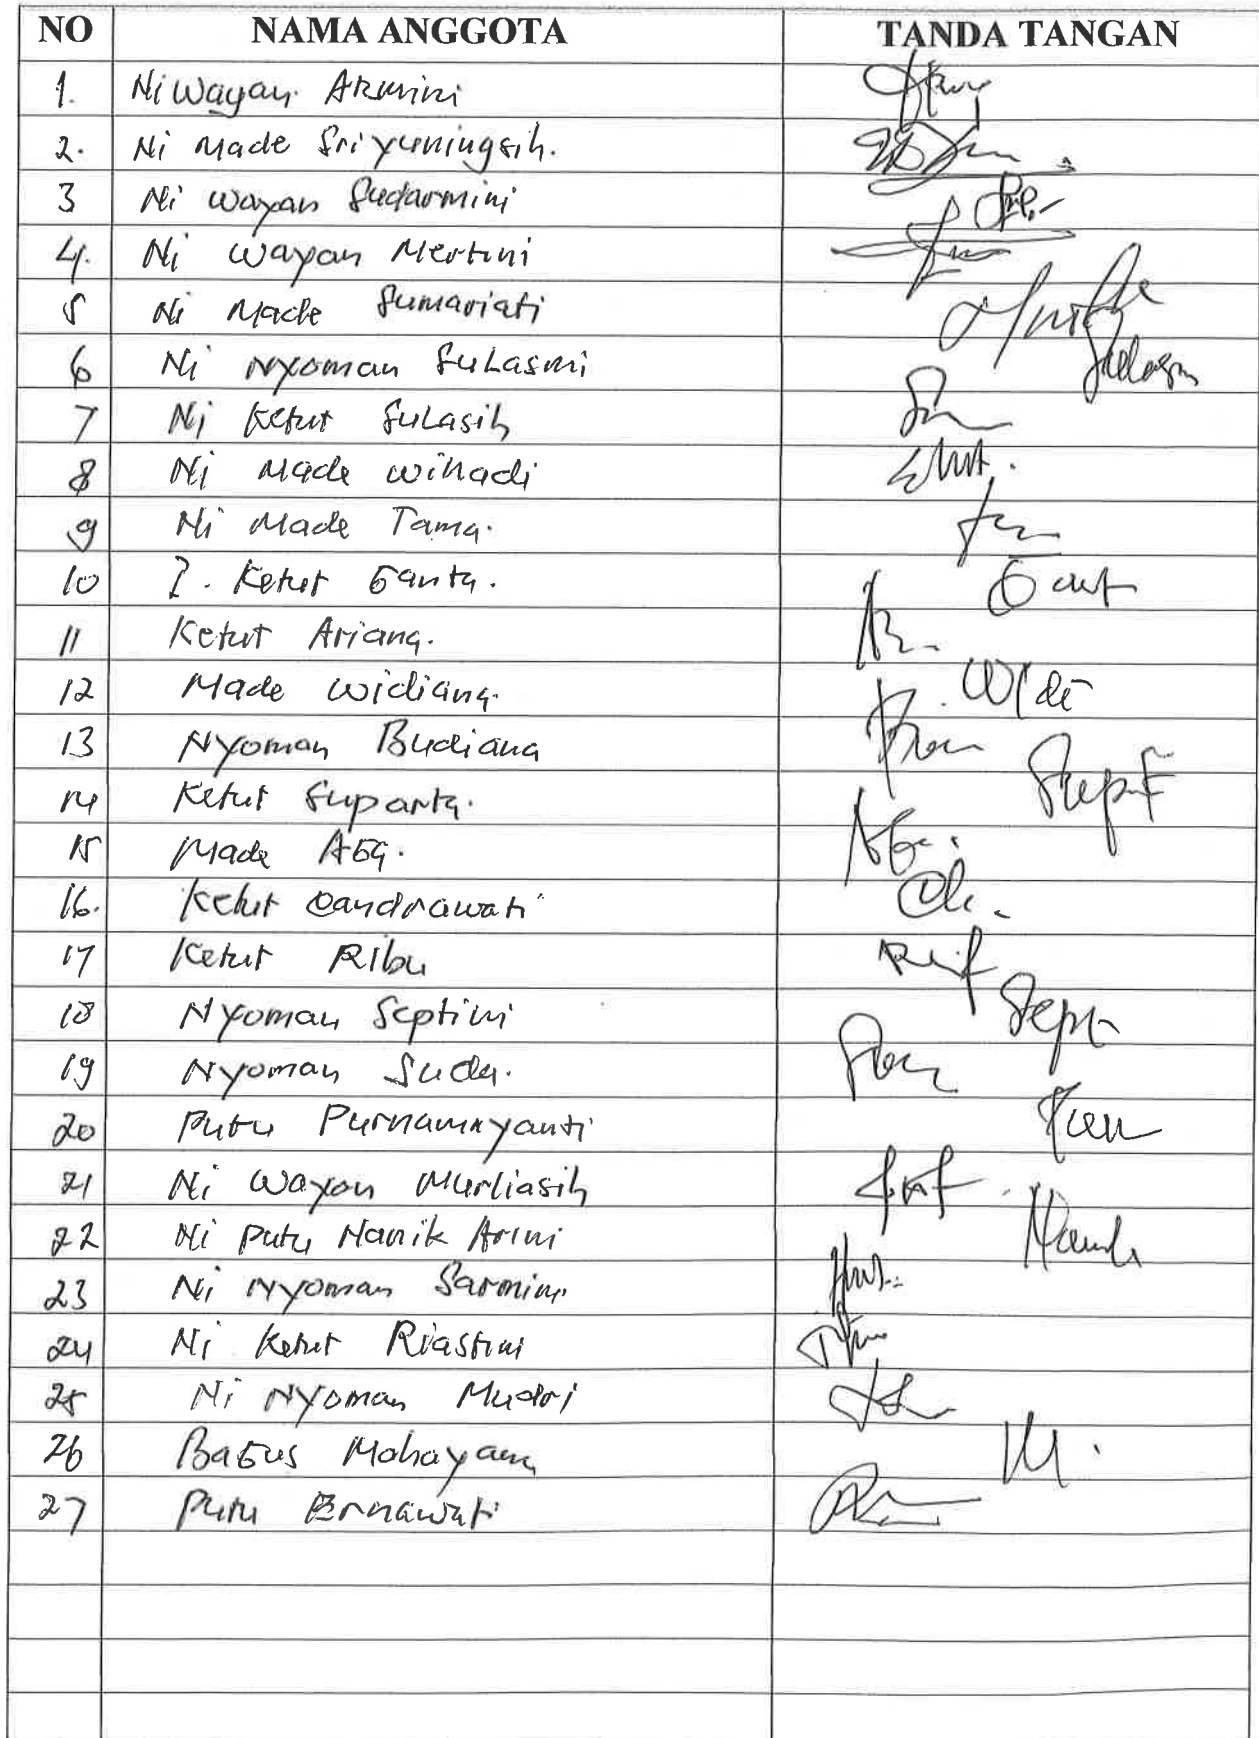 NO NAMA ANGGOTA TANDA TANGAN
1. Ni Wayan Armini
2. Ni Made Sriyuningsih.
3 Ni Wayan Sudarmini
4. Ni Wayan Mertini
5 Ni Made Sumariati
6 Ni Nyoman Sulasmi Sulasm
7 Ni Ketut Sulasih
8 Ni Made Wihadi
9 Ni Made Tama.
10 I. Ketut Ganta. Gant
11 Ketut Ariana.
12 Made Widiana. Widi
13 Nyoman Budiana
14 Ketut Suparta.
15 Made
16. Ketut Candrawati
17 Ketut Ribu
18 Nyoman Septini Sept
19 Nyoman Suda.
20 Putu Purnamayanti
21 Ni Wayan Murliasih
22 Ni Putu Nanik Arini
23 Ni Nyoman Sarmini
24 Ni Ketut Riastini
25 Ni Nyoman Mudri
26 Bagus
27 Putu Ernawati